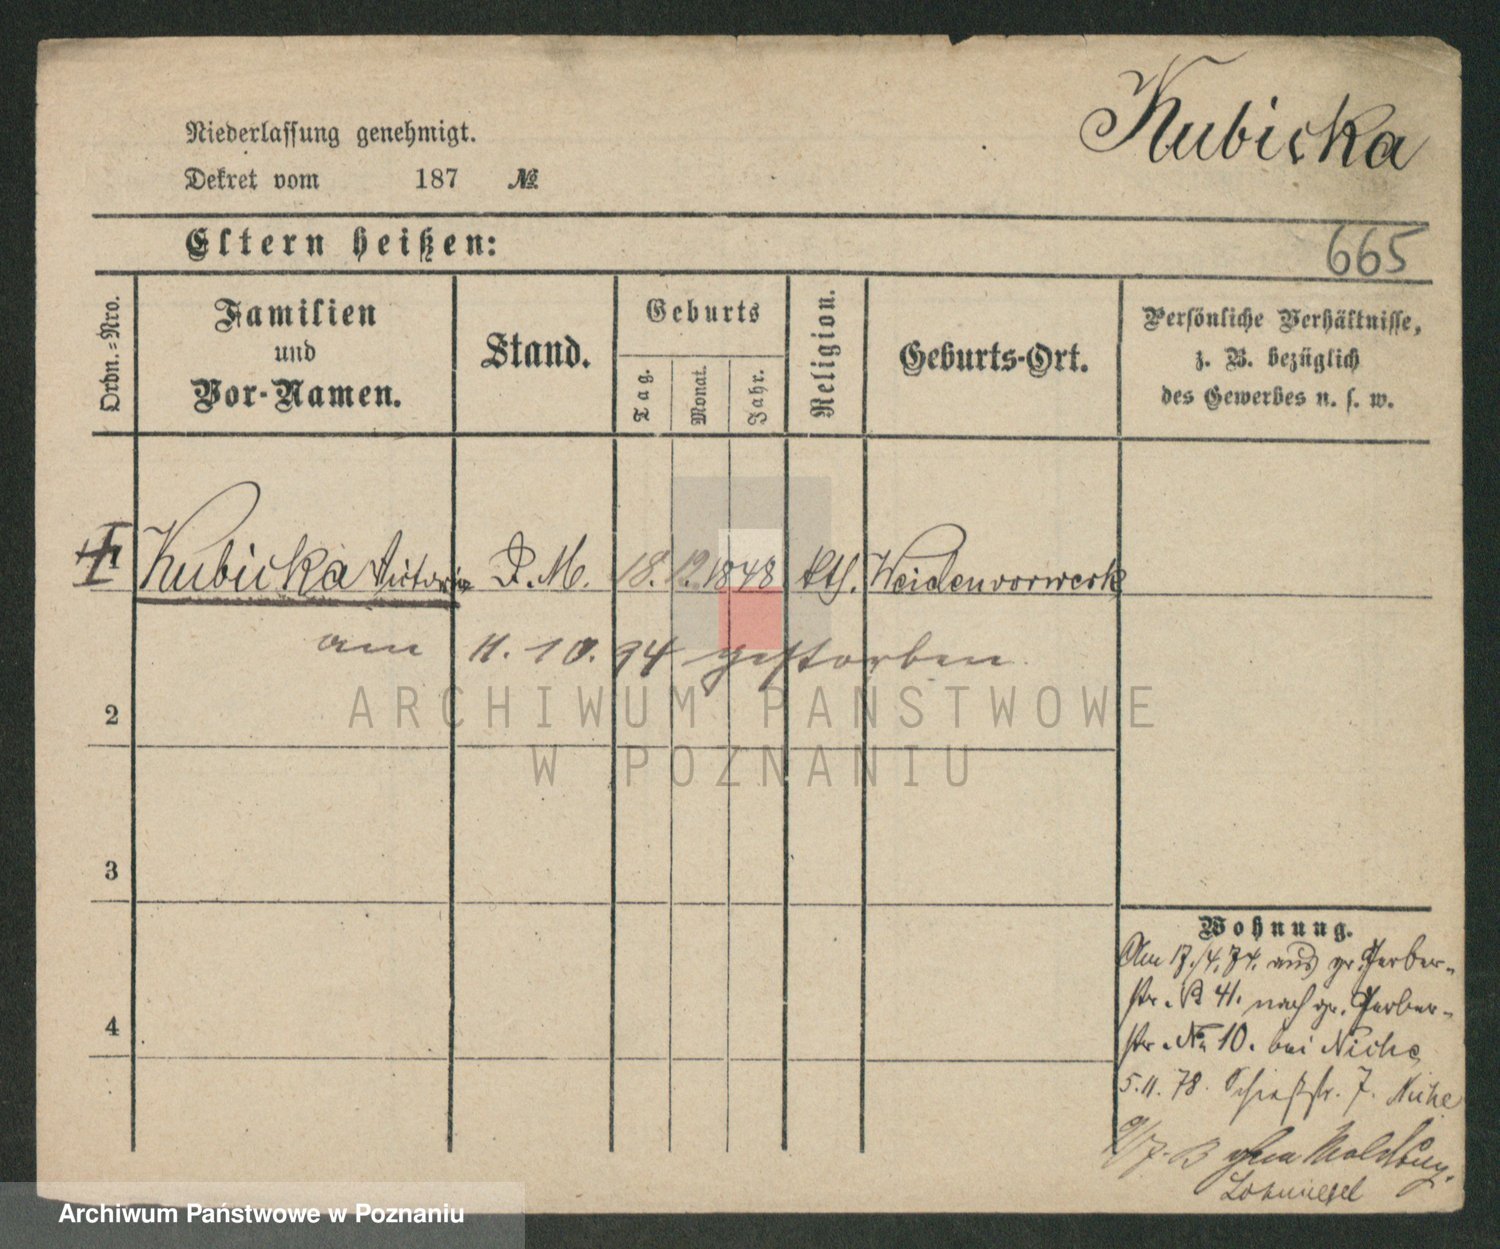 Kubicka
Niederlassung genehmigt.
Dekret vom 187 №
Eltern heißen:
665
Ordn.-Nro.
Familien
und
Vor-Namen.
Stand.
Geburts
Tag.
Monat.
Jahr.
Religion.
Geburts-Ort.
Persönliche Verhältnisse,
z. B. bezüglich
des Gewerbes u. s. w.
Kubicka Victoria D. M. 18. 12. 1848 kth. Weidenvorwerk
am 11. 10. 94 gestorben
ARCHIWUM PAŃSTWOWE
W POZNANIU
2
3
4
Wohnung.
Am 17./4.74. aus gr. Gerber-
str. № 41. nach gr. Gerber-
str. № 10. bei Niche
5.11.78. Schießstr. 7. Niche
Archiwum Państwowe w Poznaniu